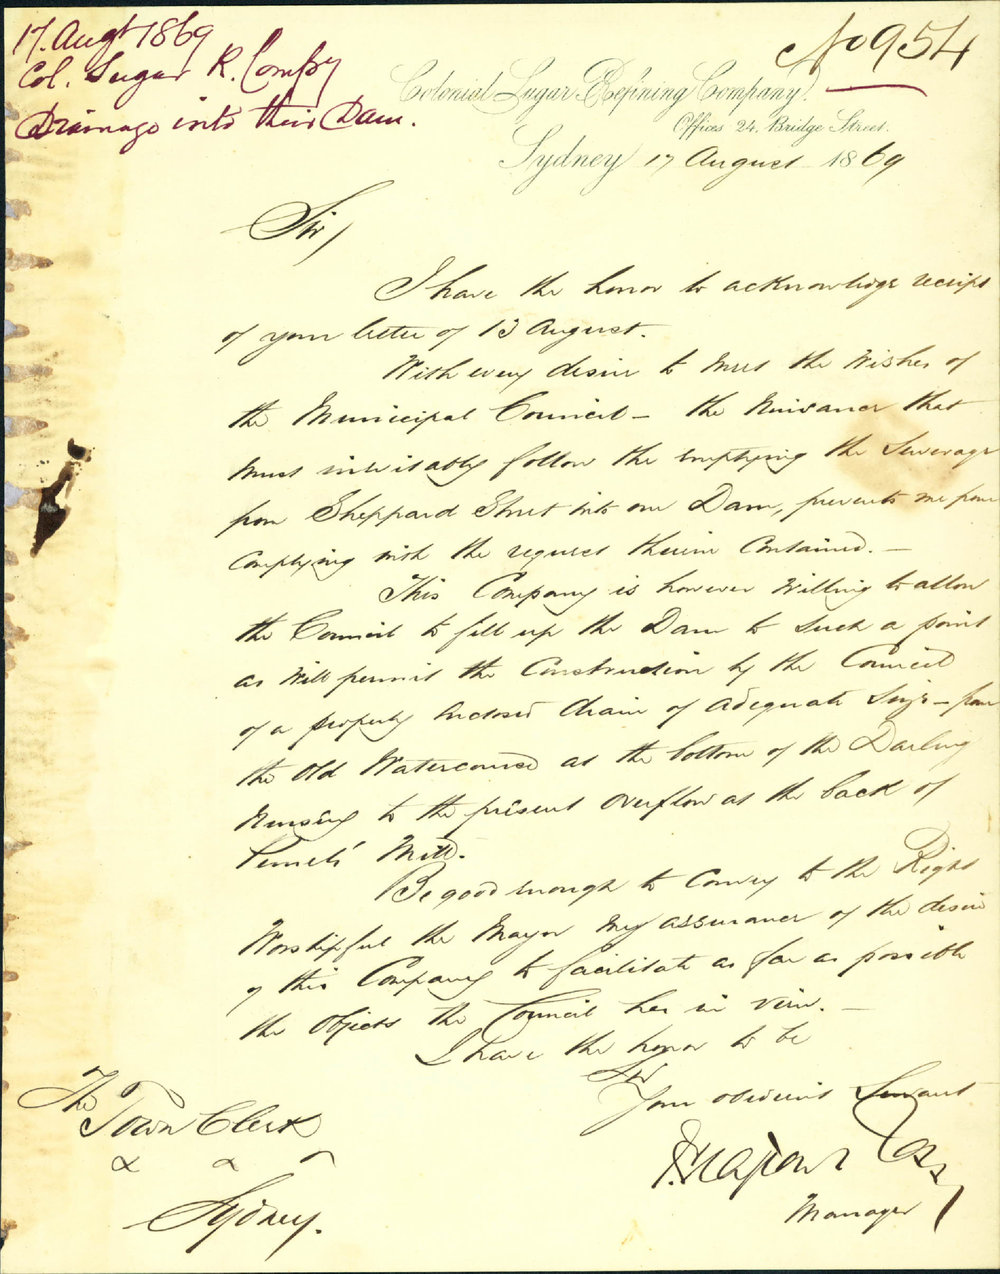 17. Augt 1869
Col. Sugar R. Compy
Drainage into their Dam.
No 954
Colonial Sugar Refining Company.
Offices 24, Bridge Street.
Sydney 17 August 1869
Sir,
I have the honor to acknowledge receipt
of your letter of 13 August.
With every desire to meet the Wishes of
the Municipal Council – the Nuisance that
must inevitably follow the emptying the Sewerage
from Sheppard Street into our Dam, prevents me from
complying with the request therein contained. –
This Company is however willing to allow
the Council to fill up the Dam to such a point
as will permit the Construction by the Council
of a properly enclosed drain of adequate size – from
the Old Watercourse at the bottom of the Darling
Nursery to the present overflow at the back of
Mill.
Be good enough to convey to the Right
Worshipful the Mayor my assurance of the desire
of this Company to facilitate as far as possible
the Objects the Council has in view. –
I have the honor to be
Sir
Your obedient Servant
Manager
The Town Clerk
&c &c
Sydney.